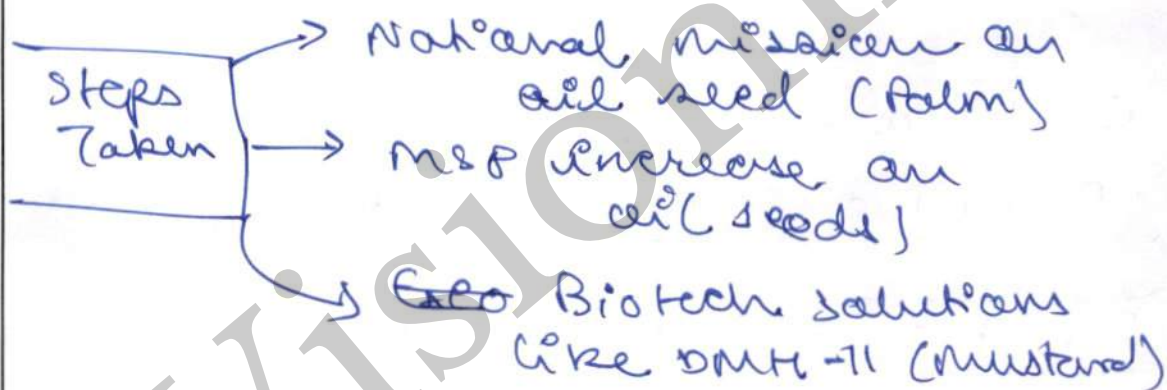 Steps
Taken
→ National mission on
oil seed (Palm)
→ MSP increase on
oil seeds)
→ Biotech solutions
like DMH-11 (Mustard)
Vision